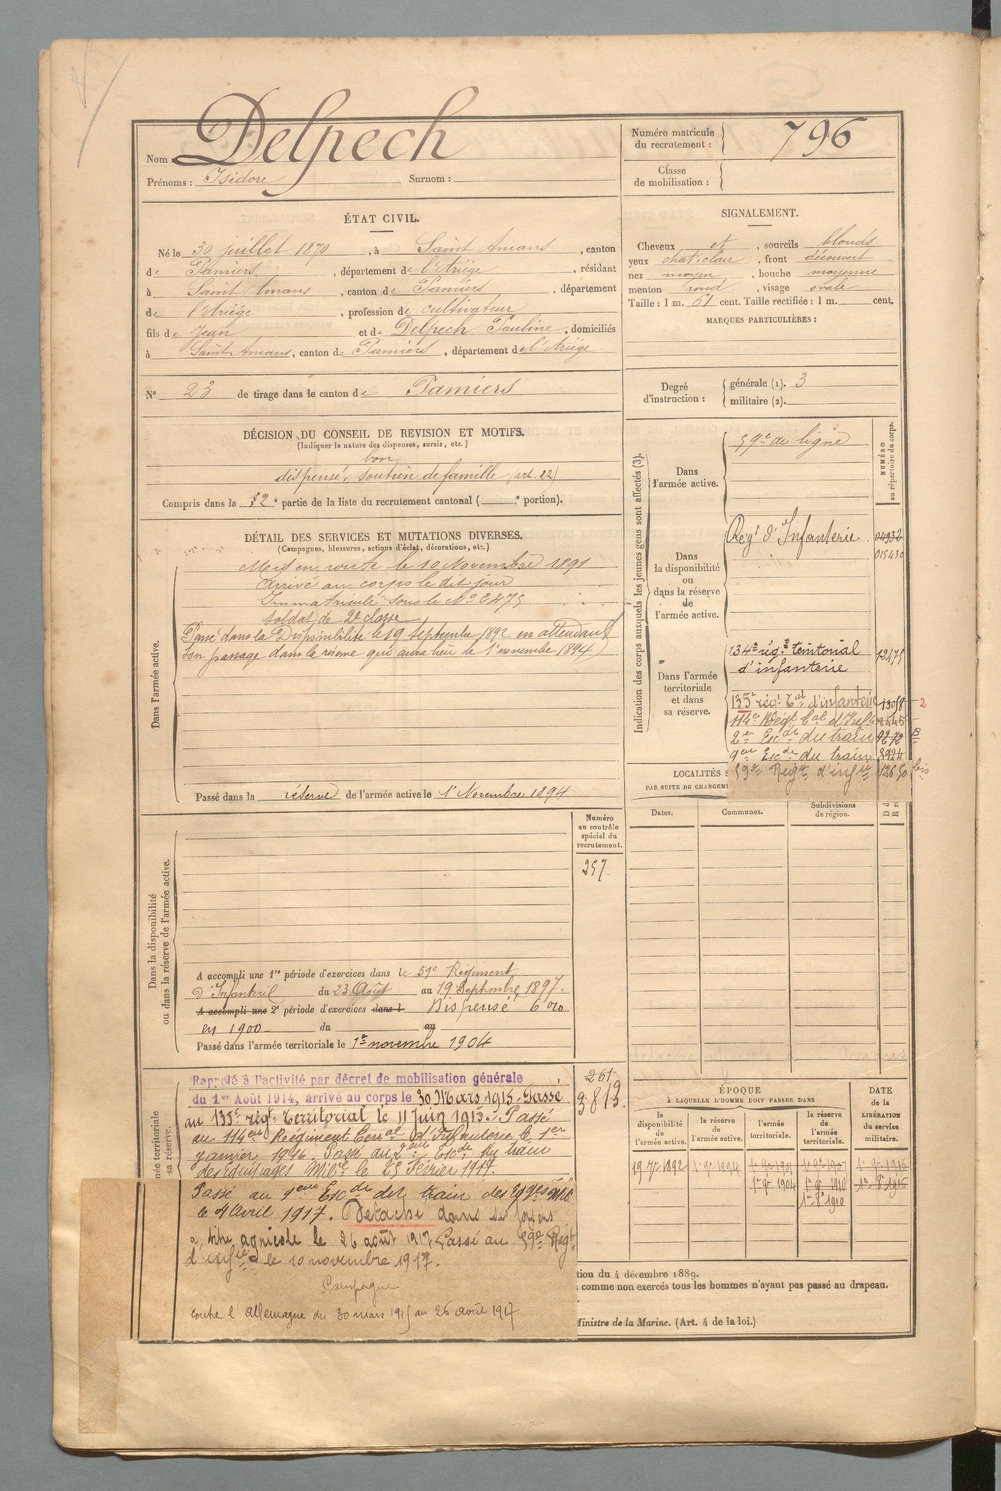 Nom : Delpech
Prénoms : Isidore Surnom :
Numéro matricule du recrutement : 796
Classe de mobilisation :
ÉTAT CIVIL.
Né le 30 juillet 1870, à Saint Amans, canton
de Pamiers, département de l'Ariège, résidant
à Saint Amans, canton de Pamiers, département
de l'Ariège, profession de cultivateur
fils de Jean et de Delpech Pauline, domiciliés
à Saint Amans, canton de Pamiers, département de l'Ariège
SIGNALEMENT.
Cheveux et, sourcils blonds
yeux chat. clair, front découvert
nez moyen, bouche moyenne
menton rond, visage ovale
Taille : 1 m. 61 cent. Taille rectifiée : 1 m. cent.
MARQUES PARTICULIÈRES :
N° 23 de tirage dans le canton de Pamiers
Degré d'instruction : générale (1). 3
militaire (2).
DÉCISION DU CONSEIL DE REVISION ET MOTIFS.
(Indiquer la nature des dispenses, sursis, etc.)
bon
dispensé, soutien de famille (art. 22)
Compris dans la partie de la liste du recrutement cantonal ( portion).
DÉTAIL DES SERVICES ET MUTATIONS DIVERSES.
(Campagnes, blessures, actions d'éclat, décorations, etc.)
Dans l'armée active.
Mis en route le 10 Novembre 1891
Arrivé au corps le dit jour
Immatriculé sous le N° 2475
soldat de 2e classe
Passé dans la Disponibilité le 19 septembre 1892 en attendant
son passage dans la réserve qui aura lieu le 1er novembre 1894
Passé dans la réserve de l'armée active le 1er Novembre 1894
Indication des corps auxquels les jeunes gens sont affectés (3).
NUMÉRO au répertoire du corps.
Dans l'armée active.
59e de ligne
Dans la disponibilité ou dans la réserve de l'armée active.
Régt d'Infanterie
015430
Dans l'armée territoriale et dans sa réserve.
134e régt territorial
d'infanterie
12475
135e régt Tal d'infanterie
114e Régt Tal d'Infie
2e Escon du train
9e Escon du train
59e Régt d'infie bis
LOCALITÉS
PAR SUITE DE CHANGEM
Dates.
Communes.
Subdivisions de région.
Dans la disponibilité ou dans la réserve de l'armée active.
Numéro au contrôle spécial du recrutement.
257
A accompli une 1re période d'exercices dans le 59e Régiment
d'Infanterie du 23 Août au 19 Septembre 1897.
A accompli une 2e période d'exercices dans l Dispensé
en 1900 du au
Passé dans l'armée territoriale le 1er novembre 1904
née territoriale
sa réserve.
261
3813.
Rappelé à l'activité par décret de mobilisation générale
du 1er Août 1914, arrivé au corps le 30 Mars 1915. Passé
au 135e régt territorial le 11 Juin 1915. Passé
au 114e Régiment Terral d'Infanterie le 1er
janvier 1916. Passé au 2e Escon du train
des équipages Mires le Février 1917.
Passé au 9e Escon du train des Eqges Mil
le 4 Avril 1917. Détaché dans ses foyers
à titre agricole le 26 août 1917. Passé au 59e Régt
d'infie le 10 novembre 1917.
Campagne
contre l'Allemagne du 30 mars 1915 au 26 août 1917
ÉPOQUE
À LAQUELLE L'HOMME DOIT PASSER DANS
la disponibilité de l'armée active.
la réserve de l'armée active.
l'armée territoriale.
la réserve de l'armée territoriale.
DATE de la LIBÉRATION du service militaire.
19 7r 1892
1er 9r 1894
1er 9r 1904
1er 8r 1910
tion du 4 décembre 1889.
comme non exercés tous les hommes n'ayant pas passé au drapeau.
Ministre de la Marine. (Art. 4 de la loi.)